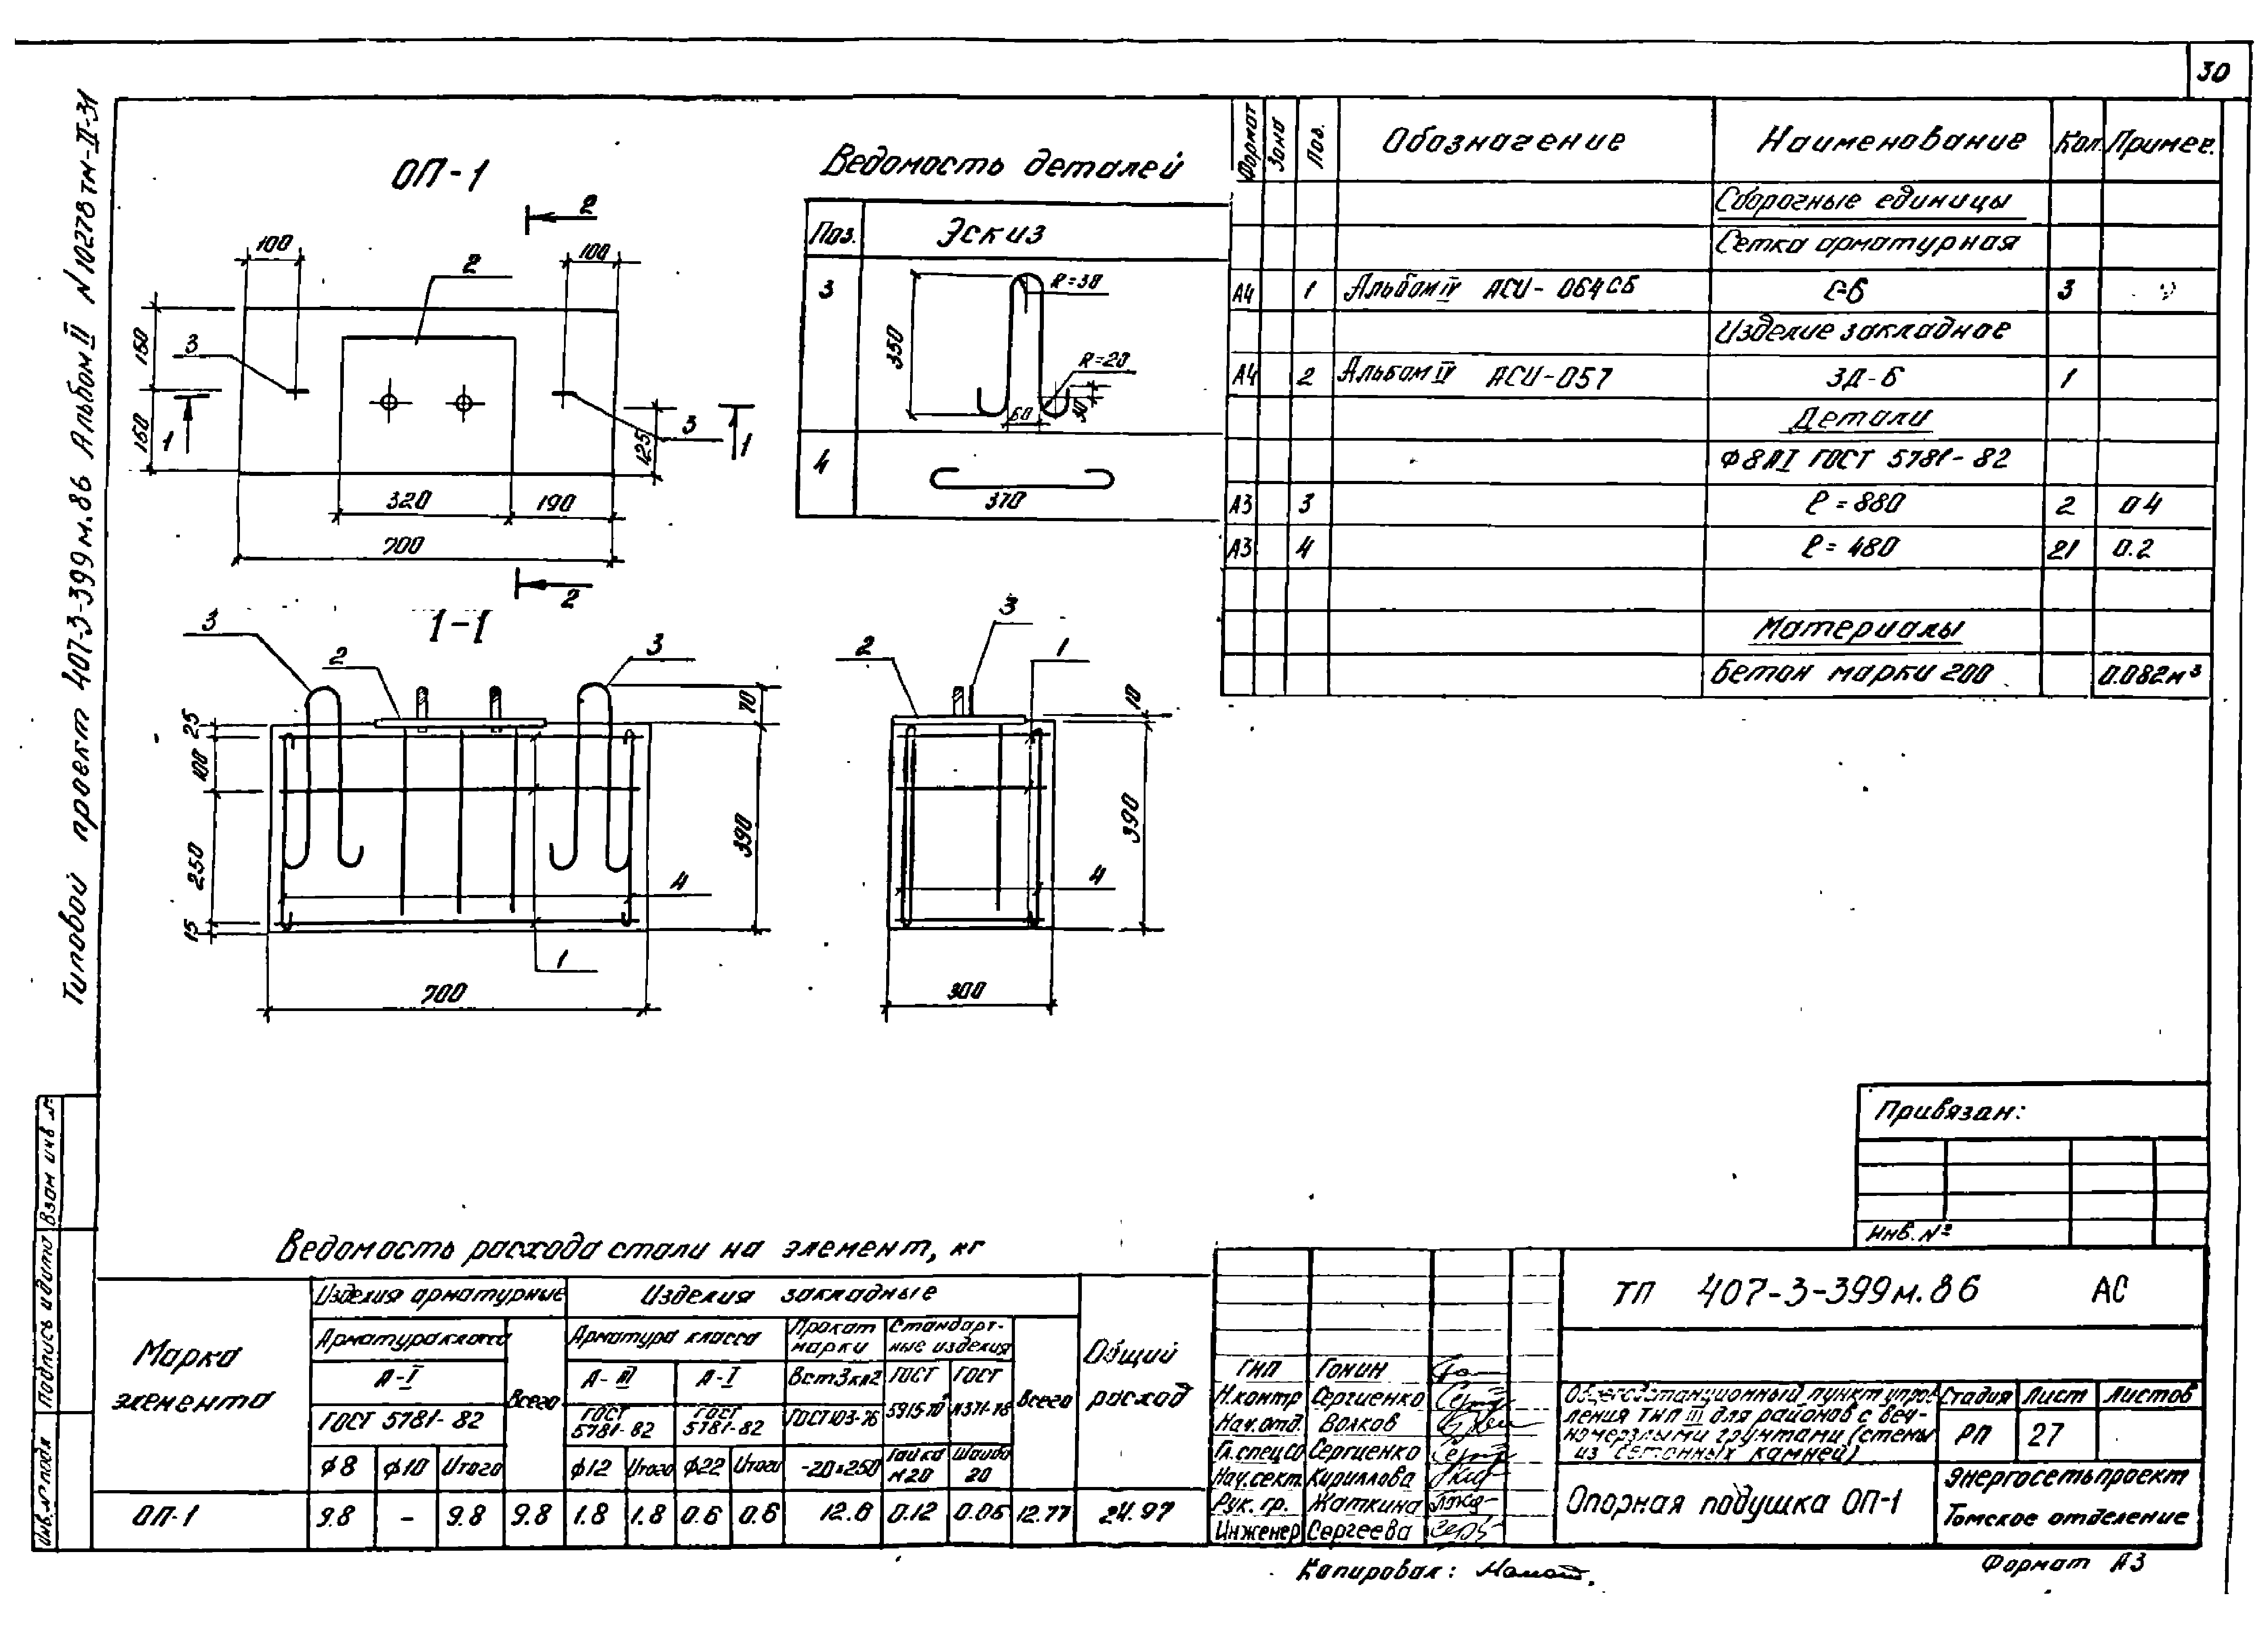 30
Типовой проект 407-3-399м.86 Альбом II N 10278тм-II-31
ОП-1
2
100
100
2
3
150
150
1
3
1
125
320
190
700
2
1-1
3
2
3
70
25
100
250
15
390
4
1
700
2
3
1
10
390
4
300
Ведомость деталей
Поз. Эскиз
3
R=30
350
R=20
60
30
4
370
Формат Зона Поз. Обозначение Наименование Кол. Примеч.
Сборочные единицы
Сетка арматурная
А4 1 Альбом IV АСИ-064СБ С-6 3
Изделие закладное
А4 2 Альбом IV АСИ-057 ЗД-6 1
Детали
Ф8АI ГОСТ 5781-82
А3 3 ℓ=880 2 0.4
А3 4 ℓ=480 21 0.2
Материалы
Бетон марки 200 0.082м³
Привязан:
Инв. №
Взам инв №
Подпись и дата
Инв. № подл
Ведомость расхода стали на элемент, кг
Марка элемента
Изделия арматурные
Изделия закладные
Общий расход
Арматура класса
Всего
Арматура класса
Прокат марки
Стандартные изделия
Всего
А-I
А-III
А-I
ВСт3кп2
ГОСТ 5915-70
ГОСТ 11371-78
ГОСТ 5781-82
ГОСТ 5781-82
ГОСТ 5781-82
ГОСТ 103-76
ф8 ф10 Итого ф12 Итого ф22 Итого -20х250 Гайка М20 Шайба 20
ОП-1 9.8 – 9.8 9.8 1.8 1.8 0.6 0.6 12.6 0.12 0.05 12.77 24.97
ТП 407-3-399м.86 АС
ГИП Гонин
Н.контр Сергиенко
Нач.отд. Волков
Гл.спец СО Сергиенко
Нач.сект. Кириллова
Рук. гр. Жаткина
Инженер Сергеева
Общеподстанционный пункт управ-
ления тип III для районов с веч-
номерзлыми грунтами (стены
из бетонных камней)
Стадия Лист Листов
РП 27
Опорная подушка ОП-1
Энергосетьпроект
Томское отделение
Копировал:
Формат А3